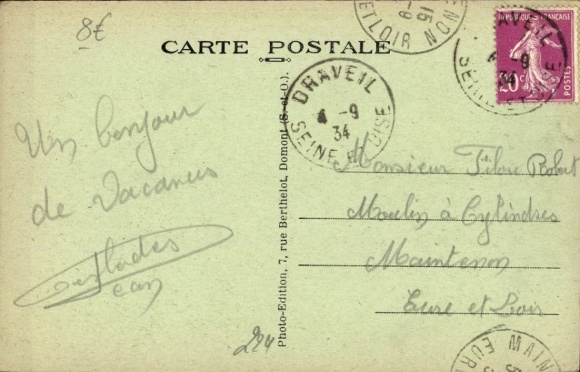 8€
CARTE POSTALE
Un bonjour
de vacances
Jean
284
Photo-Edition, 7, rue Berthelot, Domont (S.-et-O.)
DRAVEIL
4 -9
34
SEINE ET OISE
15
-9
ET LOIR
REPUBLIQUE FRANÇAISE
20c
4 -9
34
Monsieur Robert
Moulin à Cylindres
Maintenon
Eure et Loir
MAIN
EURE